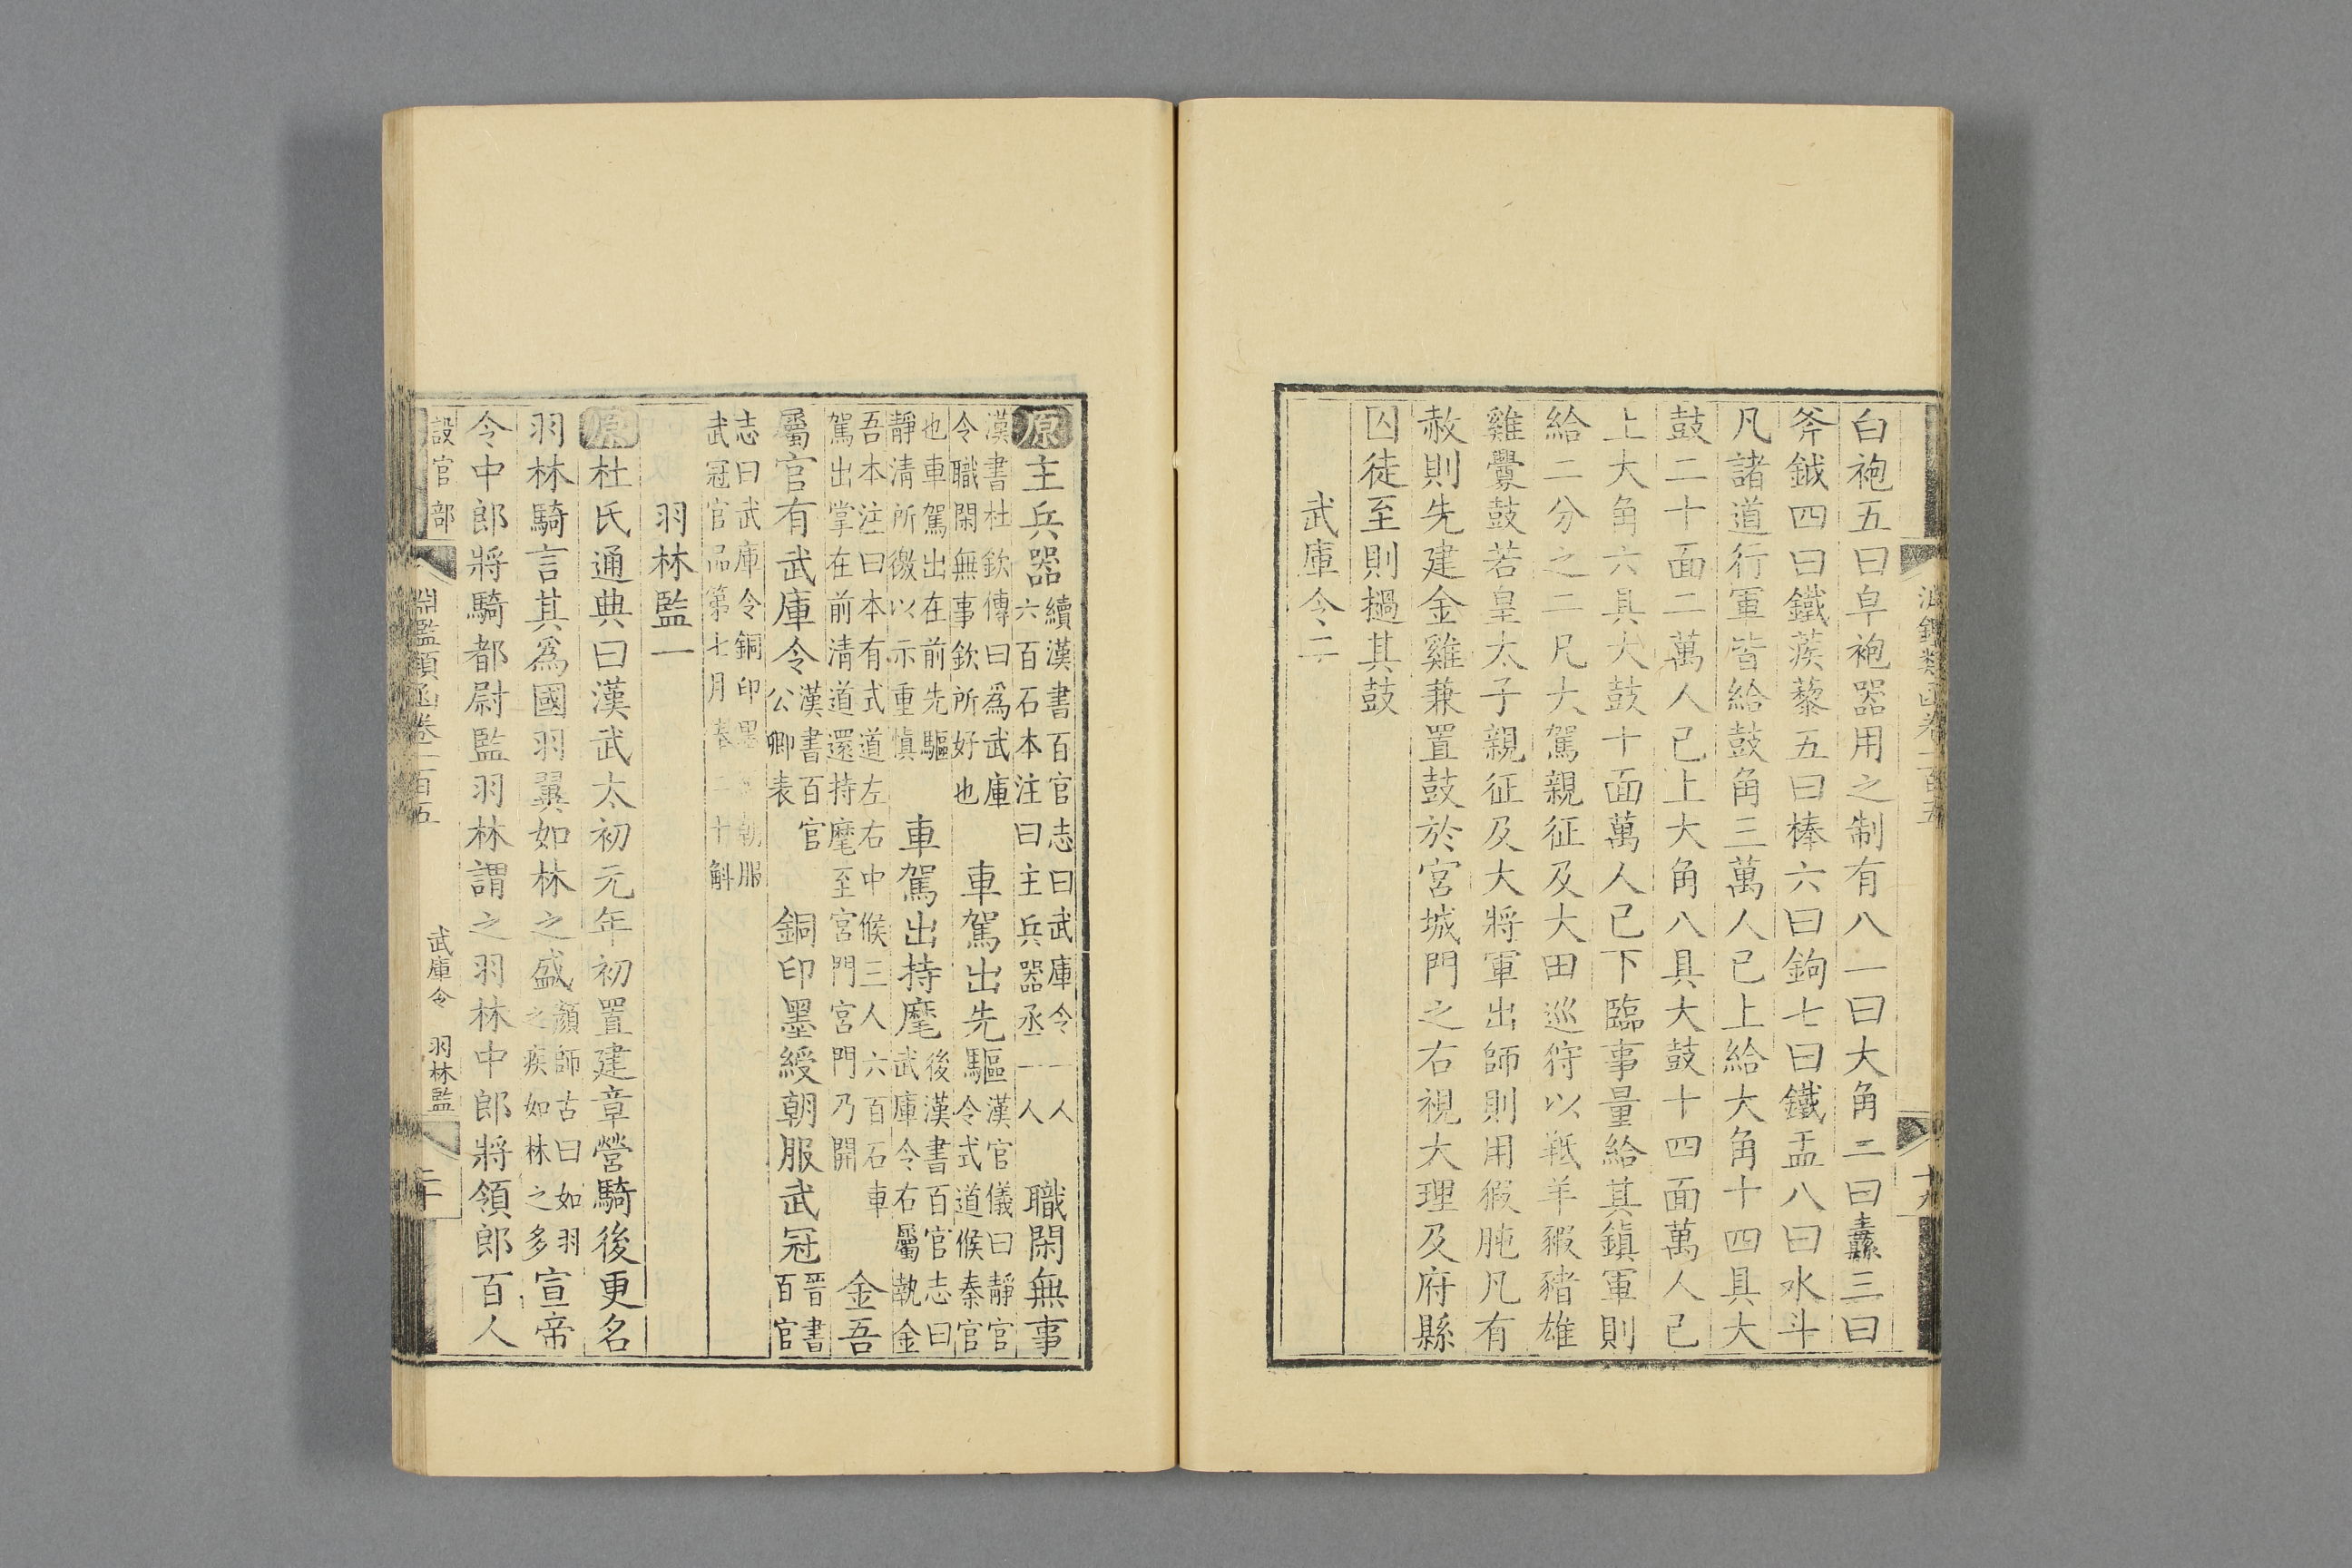 白袍五曰皁袍器用之制有八一曰大角二曰纛三曰
斧鉞四曰鐵蒺藜五曰棒六曰鉤七曰鐵盂八曰水斗
凡諸道行軍皆給鼓角三萬人已上給大角十四具大
鼓二十面二萬人已上大角八具大鼓十四面萬人已
上大角六具大鼓十面萬人已下臨事量給其鎮軍則
給二分之二凡大駕親征及大田巡狩以羝羊猳豬雄
雞釁鼓若皇太子親征及大將軍出師則用猳肫凡有
赦則先建金雞兼置鼓於宮城門之右視大理及府縣
囚徒至則撾其鼓
武庫令二
原主兵器續漢書百官志曰武庫令一人六百石本注曰主兵器丞一人職閑無事
漢書杜欽傳曰爲武庫令職閑無事欽所好也車駕出先驅漢官儀曰靜官令式道候秦官
也車駕出在前先驅靜清所徼以示重慎車駕出持麾後漢書百官志曰武庫令右屬執金
吾本注曰本有式道左右中候三人六百石車駕出掌在前清道還持麾至宮門宮門乃開金吾
屬官有武庫令漢書百官公卿表銅印墨綬朝服武冠晉書百官
志曰武庫令銅印墨朝服武冠官品第七月二十斛
羽林監一
原杜氏通典曰漢武太初元年初置建章營騎後更名
羽林騎言其爲國羽翼如林之盛顏師古曰如羽之疾如林之多宣帝
令中郎將騎都尉監羽林謂之羽林中郎將領郎百人
設官部 淵鑑類函卷一百五 武庫令 羽林監 二十